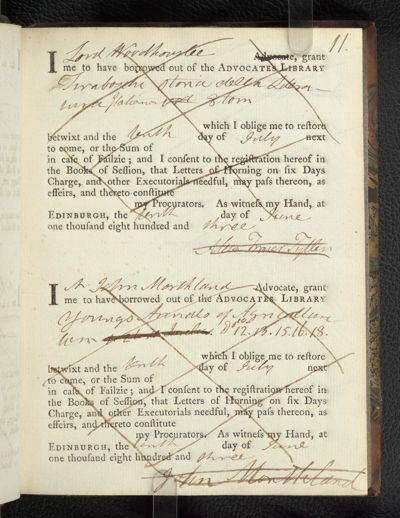 11.
I Lord Woodhouselee Advocate, grant
me to have borrowed out of the ADVOCATES LIBRARY
Tiraboschi storia della Littera-
tura Italiana tom
which I oblige me to restore
betwixt and the tenth day of July next
to come, or the Sum of
in case of Failzie; and I consent to the registration hereof in
the Books of Session, that Letters of Horning on six Days
Charge, and other Executorials needful, may pass thereon, as
effeirs, and thereto constitute
my Procurators. As witness my Hand, at
EDINBURGH, the tenth day of June
one thousand eight hundred and three
Alex Fraser Tytler
I Mr John Morthland Advocate, grant
me to have borrowed out of the ADVOCATES LIBRARY
Youngs Annals of Agricultu
12. 13. 15. 16. 18.
which I oblige me to restore
betwixt and the tenth day of July next
to come, or the Sum of
in case of Failzie; and I consent to the registration hereof in
the Books of Session, that Letters of Horning on six Days
Charge, and other Executorials needful, may pass thereon, as
effeirs, and thereto constitute
my Procurators. As witness my Hand, at
EDINBURGH, the tenth day of June
one thousand eight hundred and three
John Morthland